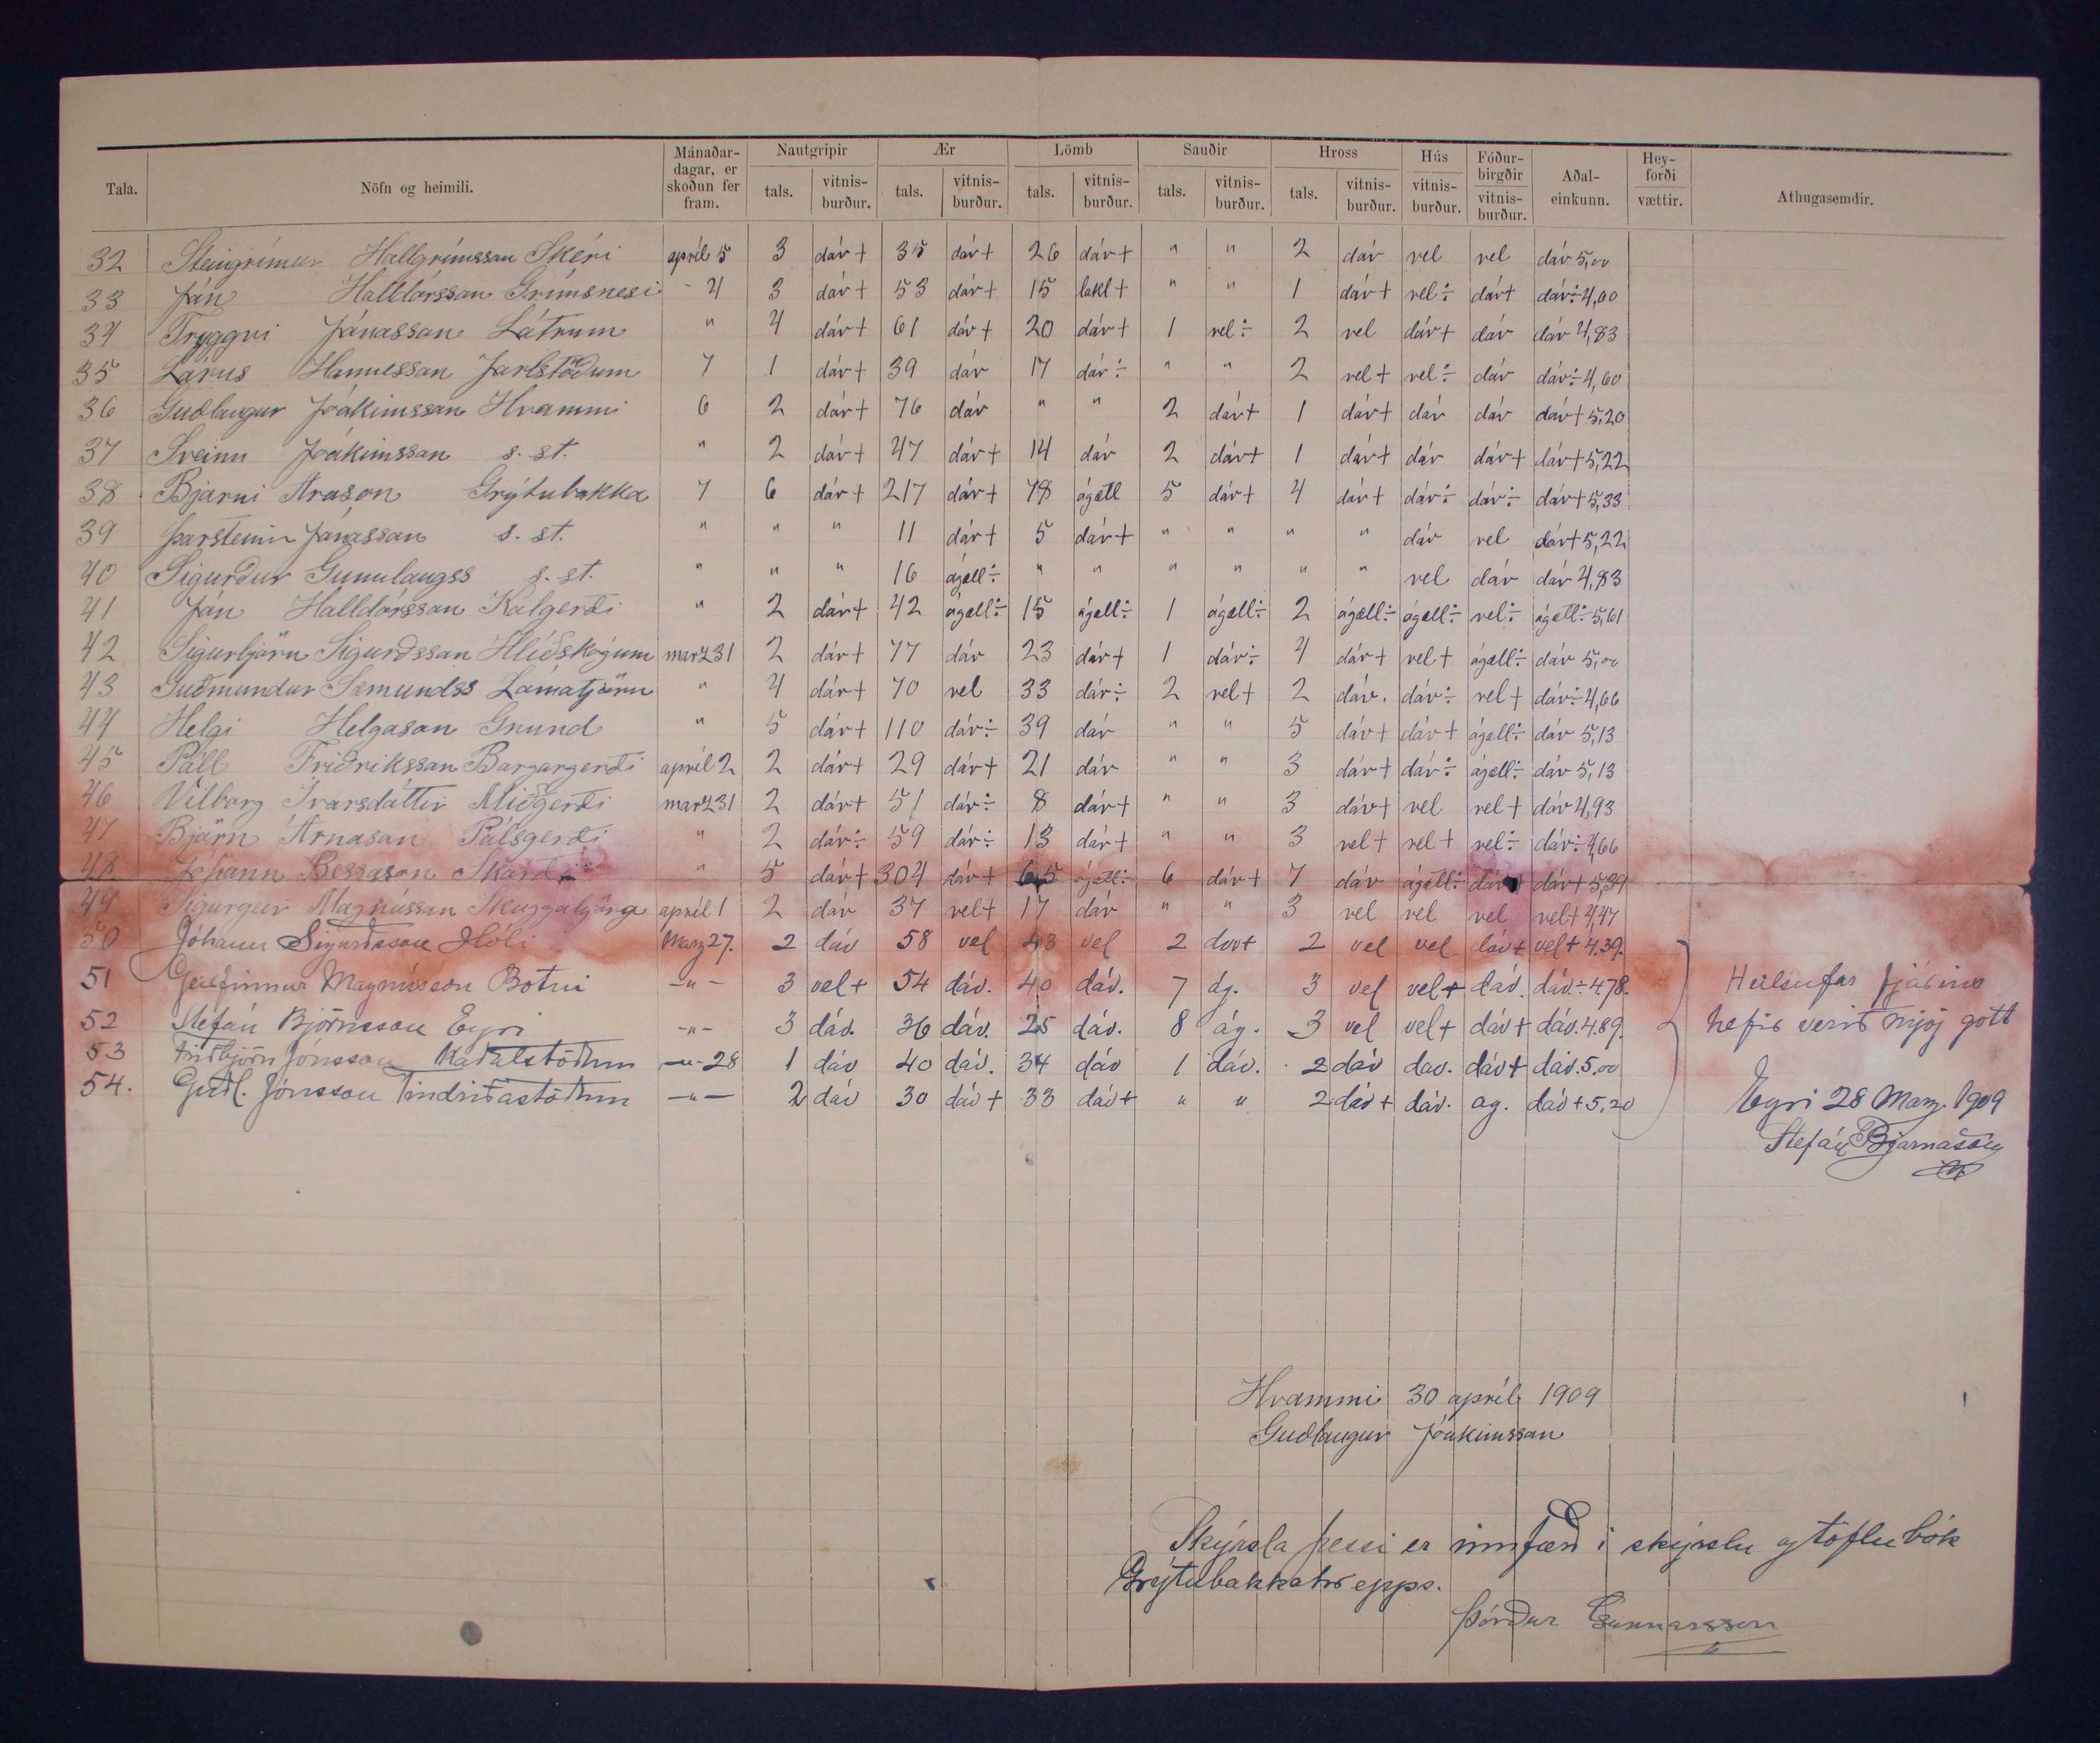 Tala. Nöfn og heimili. Mánaðar-dagar, er skoðun fer fram. Nautgripir Ær Lömb Sauðir Hross Hús Fóður-birgðir Aðal-einkunn. Hey-forði Athugasemdir.
tals. vitnis-burður. tals. vitnis-burður. tals. vitnis-burður. tals. vitnis-burður. tals. vitnis-burður. vitnis-burður. vitnis-burður. vættir.
32 Steingrímur Hallgrímsson Skéri apríl 5 3 dáv+ 35 dáv+ 26 dáv+ " " 2 dáv vel vel dáv 5,00
33 Jón Halldórsson Grímsnesi - 4 3 dáv+ 53 dáv+ 15 lakl+ " " 1 dáv+ vel÷ dáv+ dáv÷4,00
34 Tryggvi Jónasson Látrum " 4 dáv+ 61 dáv+ 20 dáv+ 1 vel÷ 2 vel dáv+ dáv dáv 4,83
35 Lárus Hannesson Jarlstöðum 7 1 dáv+ 39 dáv 17 dáv÷ " " 2 vel+ vel÷ dáv dáv÷4,60
36 Guðlaugur Jóakimsson Hvammi 6 2 dáv+ 76 dáv " " 2 dáv+ 1 dáv+ dáv dáv dáv+5,20
37 Sveinn Jóakimsson s. st. " 2 dáv+ 47 dáv+ 14 dáv 2 dáv+ 1 dáv+ dáv dáv+ dáv+5,22
38 Bjarni Arason Grýtubakka 7 6 dáv+ 217 dáv+ 78 ágætl 5 dáv+ 4 dáv+ dáv÷ dáv÷ dáv+5,33
39 Þorsteinn Jónasson s. st. " " " 11 dáv+ 5 dáv+ " " " " dáv vel dáv+5,22
40 Sigurður Gunnlaugss s. st. " " " 16 ágætl÷ " " " " " " vel dáv dáv 4,83
41 Jón Halldórsson Kolgerði " 2 dáv+ 42 ágætl÷ 15 ágætl÷ 1 ágætl÷ 2 ágætl÷ ágætl÷ vel÷ ágætl÷5,61
42 Sigurbjörn Sigurðsson Hlíðskógum marz31 2 dáv+ 77 dáv 23 dáv+ 1 dáv÷ 4 dáv+ vel+ ágætl÷ dáv 5,00
43 Guðmundur Sæmundss Lómatjörn " 4 dáv+ 70 vel 33 dáv÷ 2 vel+ 2 dáv. dáv÷ vel+ dáv÷4,66
44 Helgi Helgason Grund " 5 dáv+ 110 dáv÷ 39 dáv " " 5 dáv+ dáv+ ágætl÷ dáv 5,13
45 Páll Friðriksson Borgargerði apríl 2 2 dáv+ 29 dáv+ 21 dáv " " 3 dáv+ dáv÷ ágætl÷ dáv 5,13
46 Vilborg Ivarsdóttir Miðgerði marz31 2 dáv+ 51 dáv÷ 8 dáv+ " " 3 dáv+ vel vel+ dáv 4,93
47 Björn Árnason Pálsgerði " 2 dáv÷ 59 dáv÷ 13 dáv+ " " 3 vel+ vel+ vel÷ dáv÷4,66
48 Jóhann Bessason Skarði " 5 dáv+ 304 dáv+ 65 ágætl÷ 6 dáv+ 7 dáv ágætl÷ dáv+ dáv+5,39
49 Sigurgeir Magnússon Skuggabjörg apríl 1 2 dáv 37 vel+ 17 dáv " " 3 vel vel vel vel+4,47
50 Jóhann Sigurðsson Hóli Marz 27. 2 dáv 58 vel 43 vel 2 dáv+ 2 vel vel dáv+ vel+4.39.
51 Geirfinnur Magnússon Botni -"- 3 vel+ 54 dáv. 40 dáv. 7 ág. 3 vel vel+ dáv. dáv.÷4.78.
52 Stefán Björnsson Eyri -"- 3 dáv. 36 dáv. 25 dáv. 8 ág. 3 vel vel+ dáv+ dáv.4.89.
53 Jónsson Kaðalstöðum -"-28 1 dáv 40 dáv. 34 dáv 1 dáv. 2 dáv dáv. dáv+ dáv.5.00
54. Guðl. Jónsson Tindriðastöðum -"- 2 dáv 30 dáv+ 33 dáv+ " " 2 dáv+ dáv. ág. dáv+5,20
Heilsufar fjárins
hefir verið mjög gott
Eyri 28 Marz. 1909
Stefán Bjarnason
Hvammi 30 apríl 1909
Guðlaugur Jóakimsson
Skýrsla þessi er innfærð í skýrslu og töflubók
Grýtubakkahrepps.
Þórður Gunnarsson